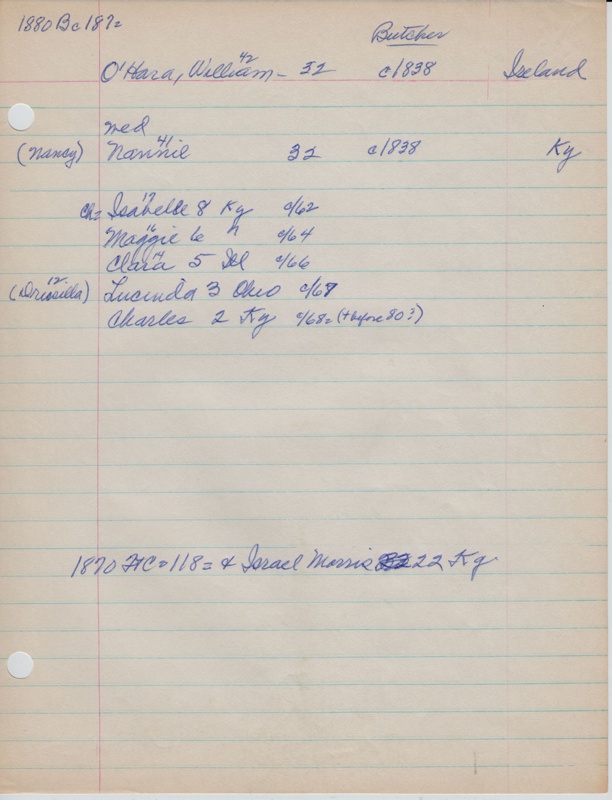 1880 B c 187=
Butcher
42
O'Hara, William - 32 c/1838 Ireland
wed
41
(Nancy) Nannie 32 c/1838 Ky
17
ch= Isabelle 8 Ky c/62
16
Maggie 6 " c/64
14
Clara 5 Ill c/66
12
(Drissilla) Lucinda 3 Ohio c/67
Charles 2 Ky c/68= (+ before 80?)
1870 FC=118= & Israel Morris 22 Ky